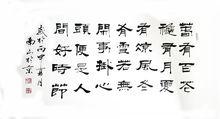 春有百花
秋有月夏
有涼風冬
有雪若無
閑事掛心
頭便是人
間好時節